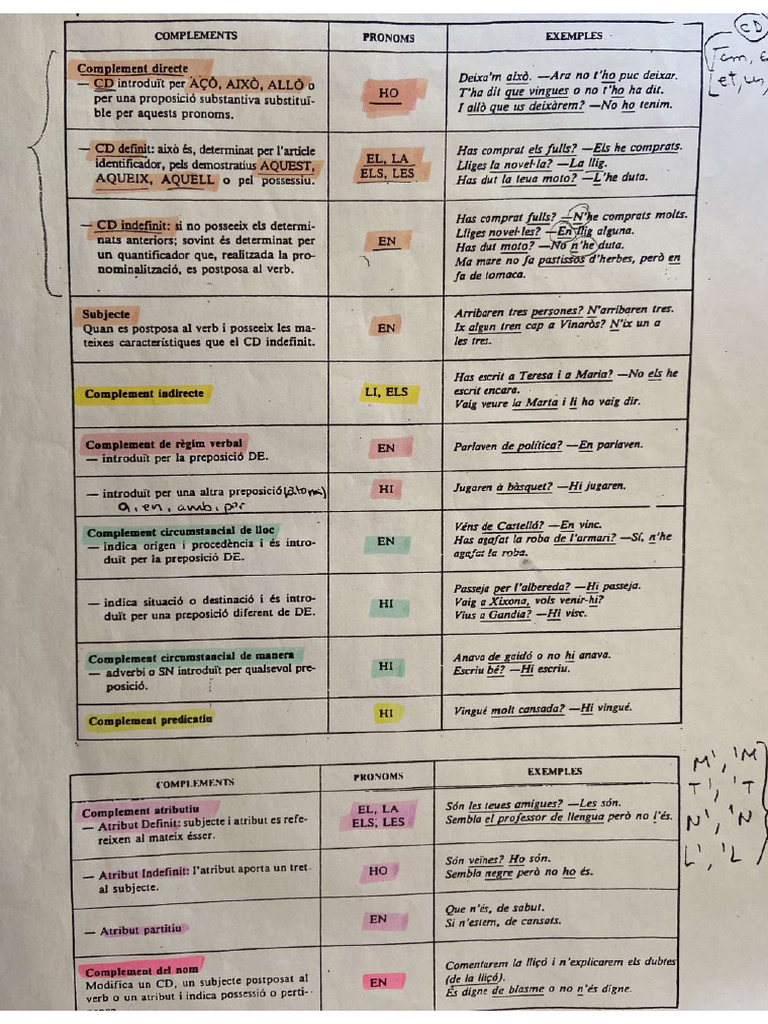 COMPLEMENTS PRONOMS EXEMPLES
Complement directe
— CD introduït per AÇÒ, AIXÒ, ALLÒ o
per una proposició substantiva substituï-
ble per aquests pronoms.
HO
Deixa'm això. —Ara no t'ho puc deixar.
T'ha dit que vingues o no t'ho ha dit.
I allò que us deixàrem? —No ho tenim.
— CD definit: això és, determinat per l'article
identificador, pels demostratius AQUEST,
AQUEIX, AQUELL o pel possessiu.
EL, LA
ELS, LES
Has comprat els fulls? —Els he comprats.
Lliges la novel·la? —La llig.
Has dut la teua moto? —L'he duta.
— CD indefinit: si no posseix els determi-
nats anteriors; sovint és determinat per
un quantificador que, realitzada la pro-
nominalització, es postposa al verb.
EN
Has comprat fulls? —N'he comprats molts.
Lliges novel·les? —En llig alguna.
Has dut moto? —No n'he duta.
Ma mare no fa pastissos d'herbes, però en
fa de tomaca.
Subjecte
Quan es postposa al verb i posseix les ma-
teixes característiques que el CD indefinit.
EN
Arribaren tres persones? N'arribaren tres.
Ix algun tren cap a Vinaròs? N'ix un a
les tres.
Complement indirecte
LI, ELS
Has escrit a Teresa i a Maria? —No els he
escrit encara.
Vaig veure la Marta i li ho vaig dir.
Complement de règim verbal
— introduït per la preposició DE.
EN
Parlaven de política? —En parlaven.
— introduït per una altra preposició (àtona)
a, en, amb, per
HI
Jugaren a bàsquet? —Hi jugaren.
Complement circumstancial de lloc
— indica origen i procedència i és intro-
duït per la preposició DE.
EN
Véns de Castelló? —En vinc.
Has agafat la roba de l'armari? —Sí, n'he
agafat la roba.
— indica situació o destinació i és intro-
duït per una preposició diferent de DE.
HI
Passeja per l'albereda? —Hi passeja.
Vaig a Xixona, vols venir-hi?
Vius a Gandia? —Hi visc.
Complement circumstancial de manera
— adverbi o SN introduït per qualsevol pre-
posició.
HI
Anava de gaidó o no hi anava.
Escriu bé? —Hi escriu.
Complement predicatiu
HI
Vingué molt cansada? —Hi vingué.
CD
COMPLEMENTS PRONOMS EXEMPLES
Complement atributiu
— Atribut Definit: subjecte i atribut es refe-
reixen al mateix ésser.
EL, LA
ELS, LES
Són les teues amigues? —Les són.
Sembla el professor de llengua però no l'és.
— Atribut Indefinit: l'atribut aporta un tret
al subjecte.
HO
Són veïnes? Ho són.
Sembla negre però no ho és.
— Atribut partitiu
EN
Que n'és, de sabut.
Si n'estem, de cansats.
Complement del nom
Modifica un CD, un subjecte postposat al
verb o un atribut i indica possessió o perti-
EN
Comentarem la lliçó i n'explicarem els dubtes
(de la lliçó).
És digne de blasme o no n'és digne.
M', 'M
T', 'T
N', 'N
L', 'L